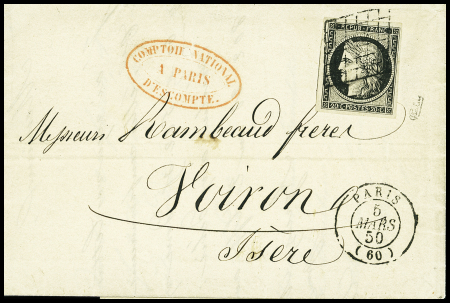 REPUB. FRANC.
20 C. POSTES 20 C.
COMPTOIR NATIONAL
A PARIS
D'ESCOMPTE.
Messieurs Rambeaud frères
Voiron
Isère
PARIS
5
MARS
50
(60)